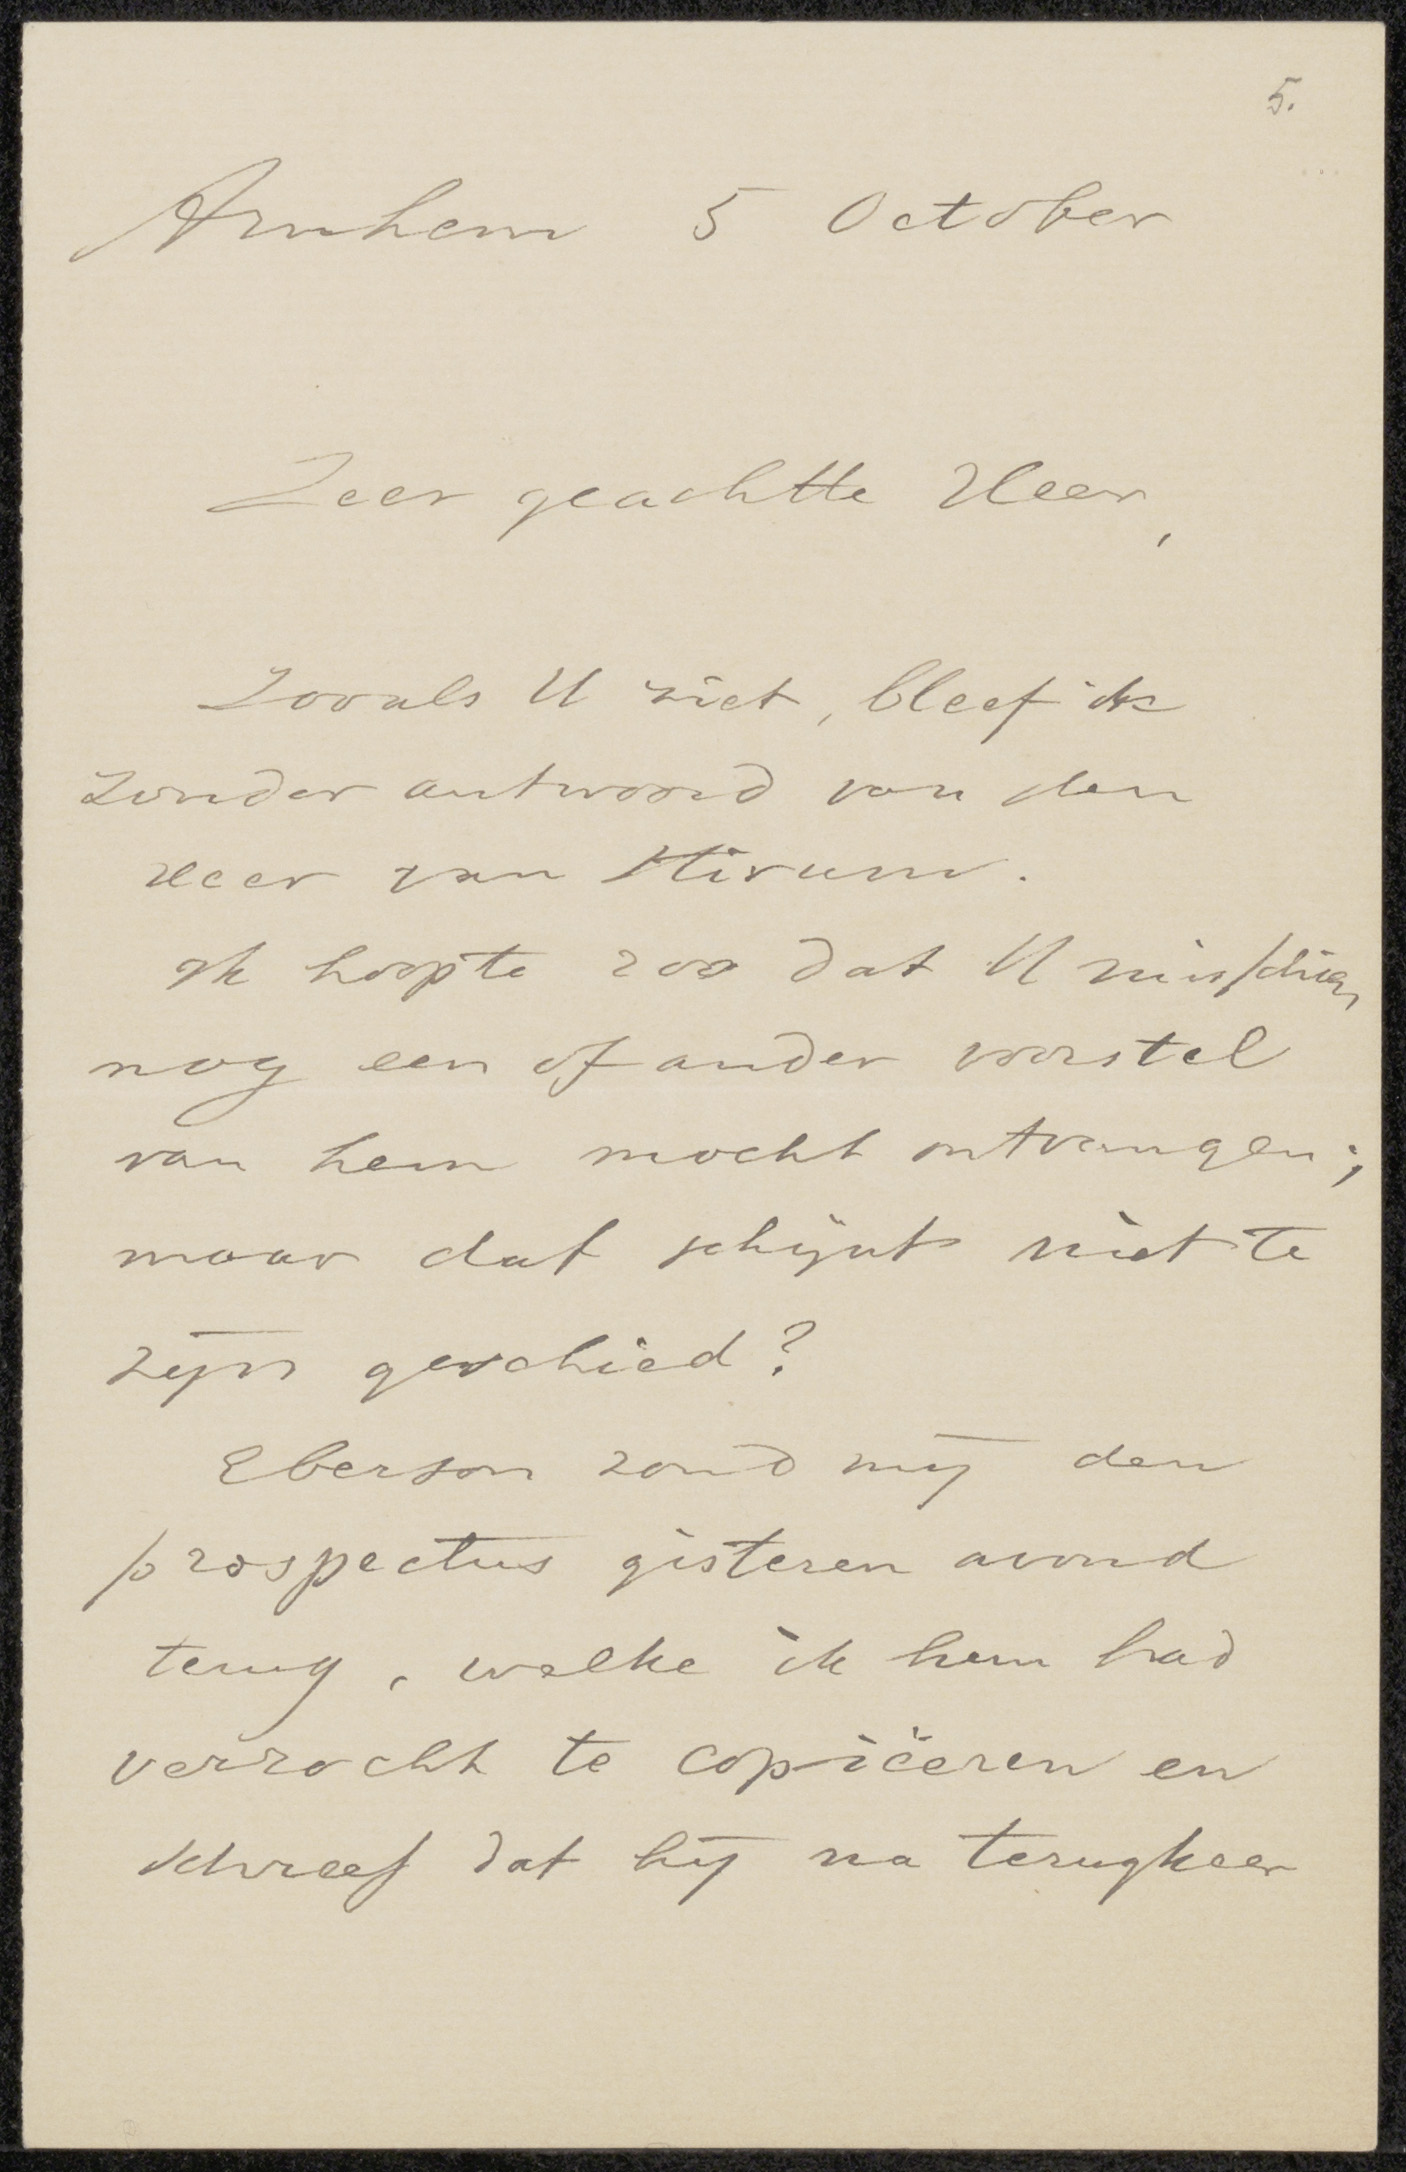 5.
Arnhem 5 October
Zeer geachtte Heer,
Zooals U ziet, bleef ik
zonder antwoord van den
Heer van Stirum.
Ik hoopte zoo dat U misschien
nog een of ander voorstel
van hem mocht ontvangen;
maar dat schijnt niet te
zijn geschied?
Eberson zond mij den
prospectus gisteren avond
terug, welke ik hem had
verzocht te copiëeren en
schreef dat hij na terugkeer